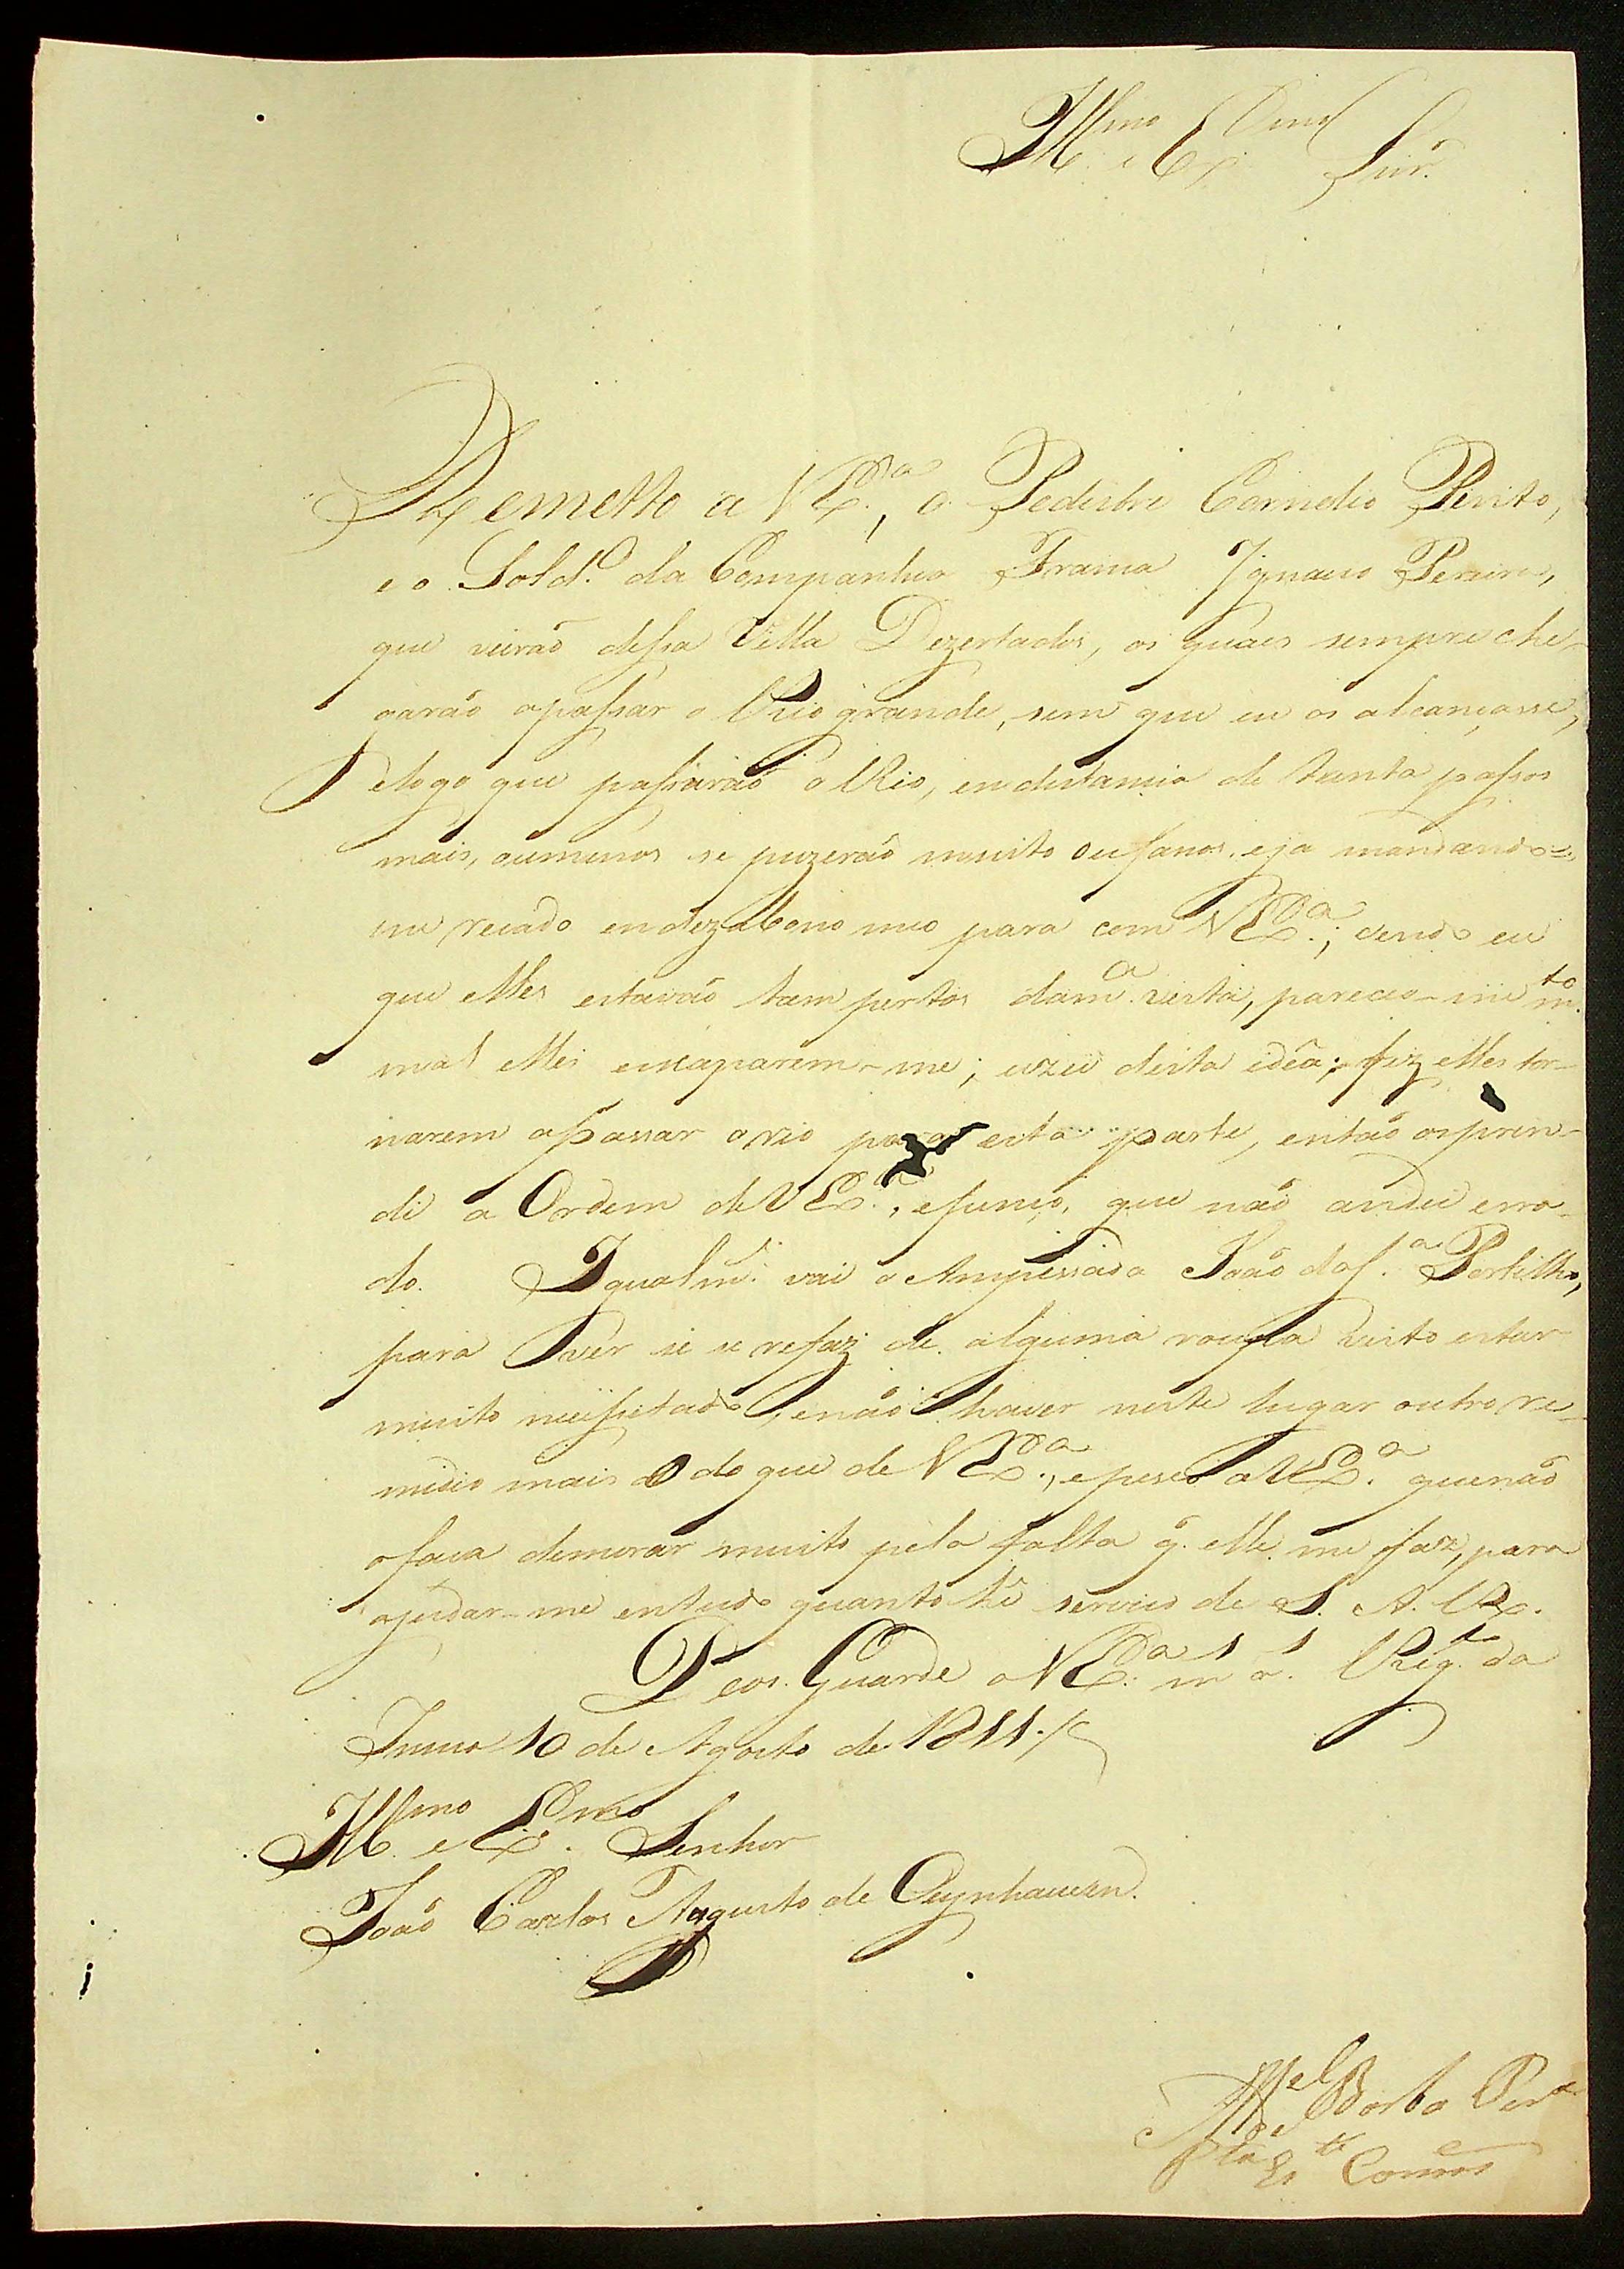 Ill.mo e Ex.mo Snr.
Remetto a V Ex.a, o Pedestre Cornelio Perito,
e o Sold.o da Companhia Franca Ignacio Pereira,
que vierão dessa Villa Dezertados, os quaes sempre che-
garão apassar o Rio grande, sem que eu os alcançasse,
elogo que passarão o Rio, en distancia de trinta passos
mais, oumenos se puzerão muito oufanos, eja mandando=
me recado en dezabono meo para com V Ex.a; vendo eu
que elles estavão tam pertos dam.a vista, pareceo-me m.to
mal elles escaparem-me; uzei desta idéa; fiz elles tor-
narem apassar o rio para esta parte, então os pren-
di a Ordem de V Ex.a, e que não andei erra-
do. Igualm.e vai o Anspessada João da S.a Portilho,
para ver se se refaz de alguma roupa visto estar
muito necessitado, enão haver neste lugar outro re-
medio mais do que de V Ex.a, epesso a V Ex.a quenão
ofaça demorar muito pela falta q. elle me faz, para
ajudar-me entudo quanto hé serviço de S. A. R.
Deos Guarde a V Ex.a m.s a.s Reg.to do
10 de Agosto de 1811.
Ill.mo e Ex.mo Senhor
João Carlos Augusto de Oeynhausen.
M.el Borba Per.a